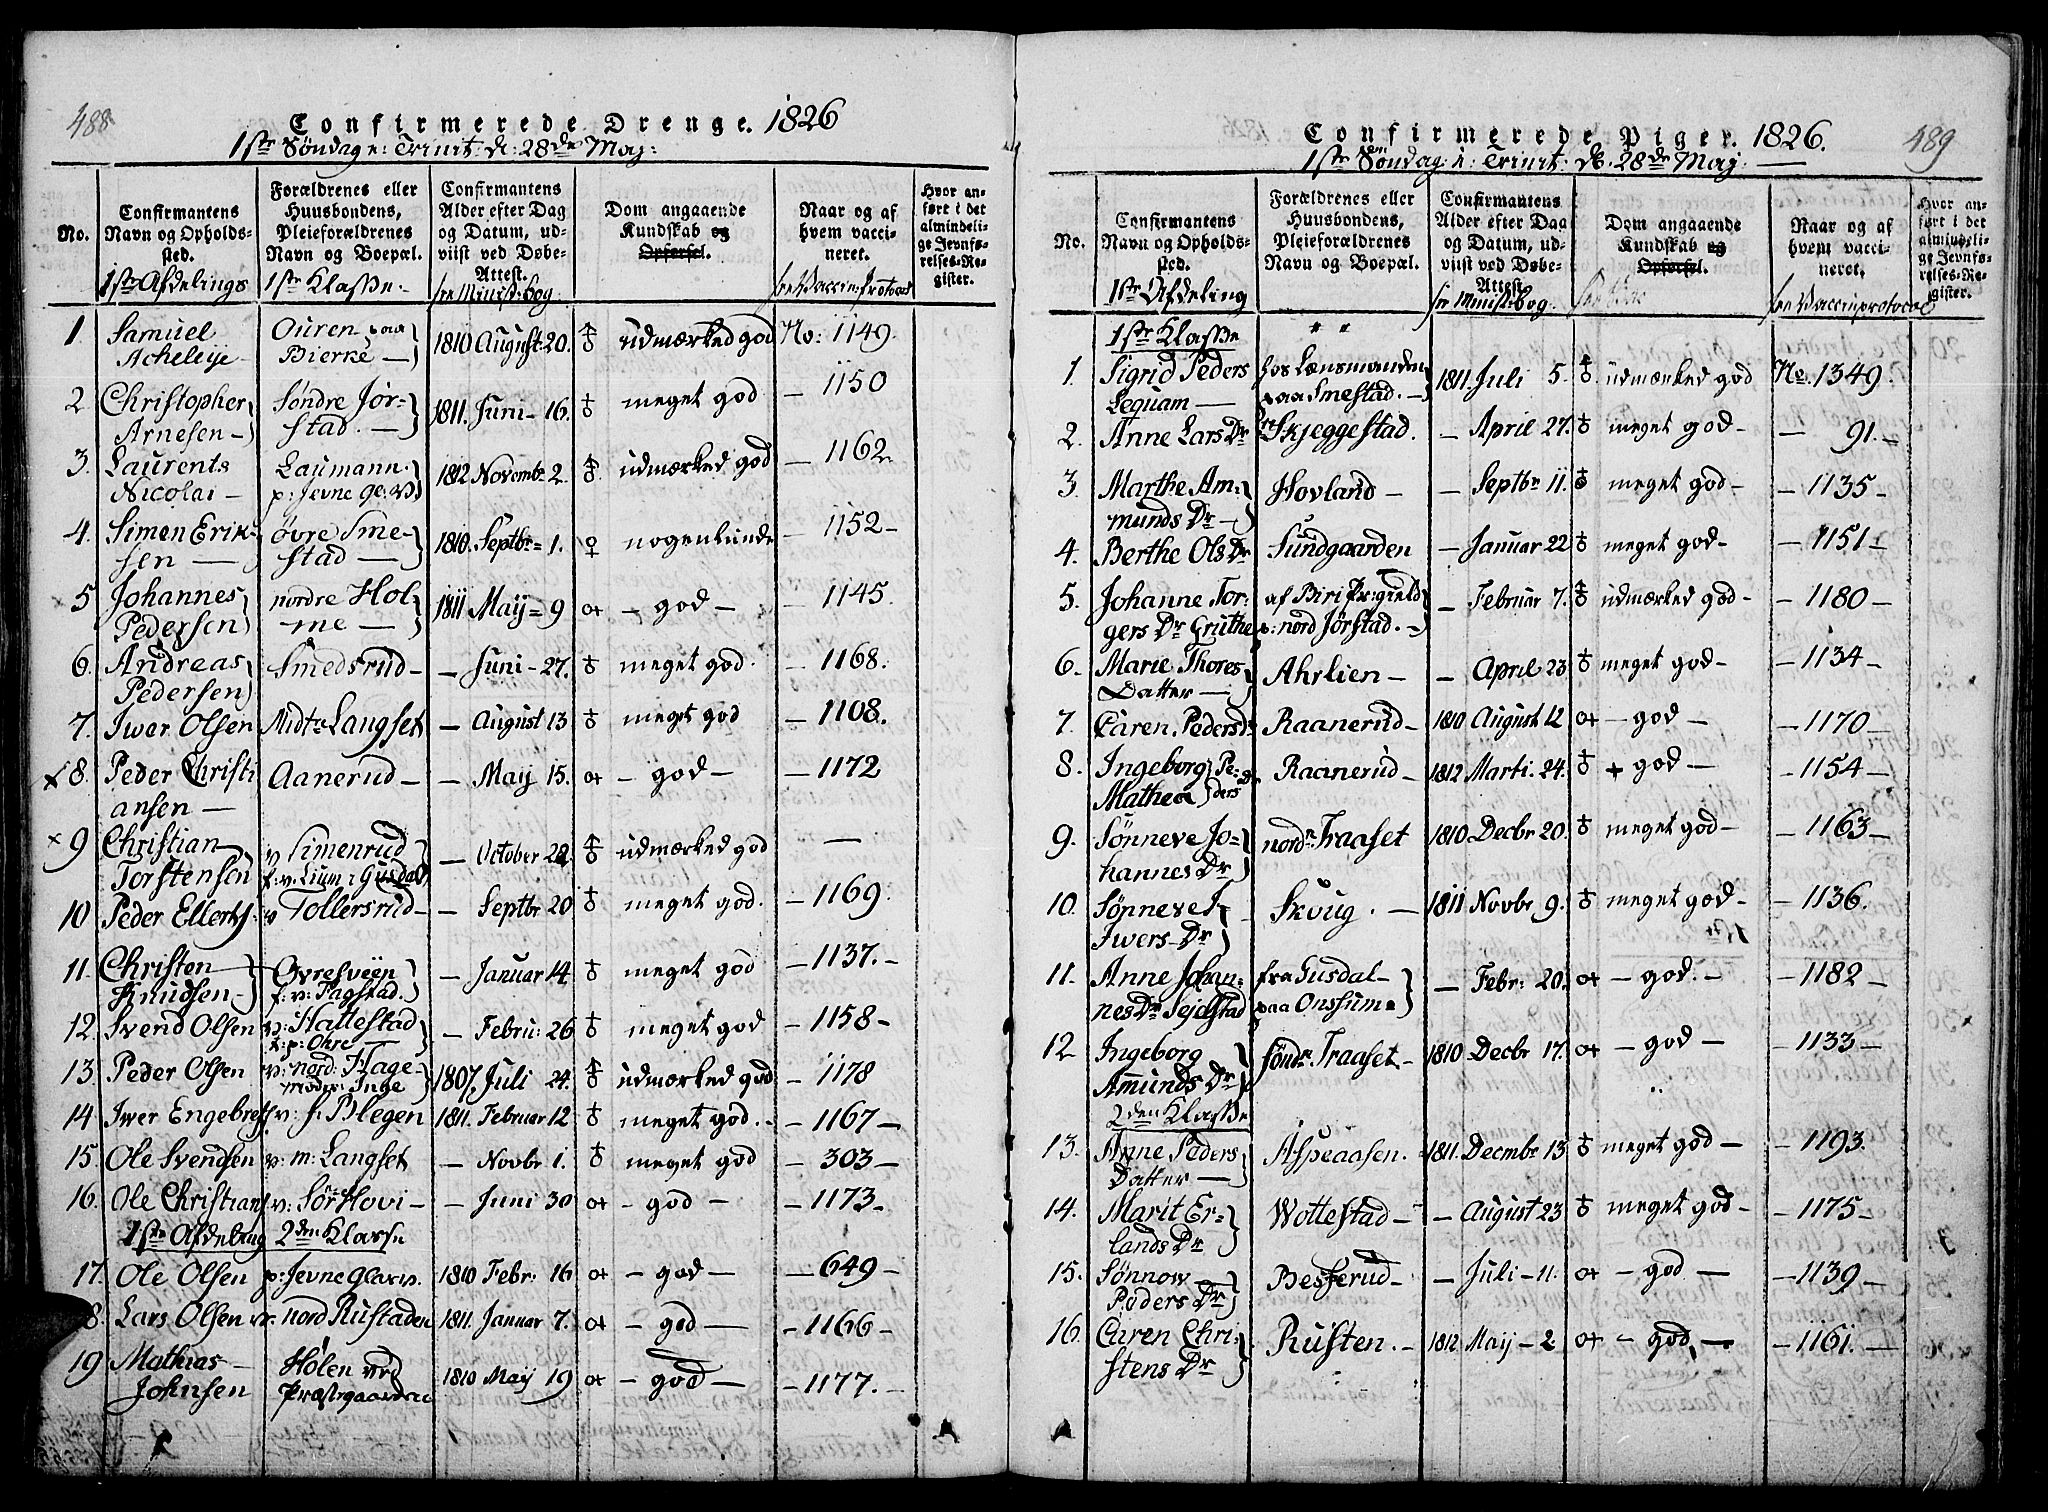 488
Confirmerede Drenge. 1826
1ste Søndag e: Trinit: d: 28de Maj:
No.
Confirmantens Navn og Opholdssted.
Forældrenes eller Huusbondens, Pleieforældrenes Navn og Boepæl.
Confirmantens Alder efter Dag og Datum, udviist ved Døbe-Attest.
Dom angaaende Kundskab og Opførsel.
Naar og af hvem vaccineret.
Hvor anført i det almindelige Jevnførelses-Register.
1ste Afdelings 1ste Klasse. se Minist: bog se Vaccin: Protocol
1 Samuel Acheleye Ouren paa Bierke — 1810 August 20. ♁ udmærked god No: 1149.
2. Christopher Arnesen — Søndre Jørstad. — 1811. Juni — 16. ♁ meget god — 1150
3. Laurents Nicolai — Laumann p: Jevne Gl: V. 1812 Novembr 2. ♁ udmærked god — 1162.
4. Simen Eriksen — øvre Smestad — 1810. Septbr = 1. ♀ nogenlunde — 1152 —
x 5 Johannes Pedersen nordre Holme — 1811 Maij = 9 — god — — 1145.
6. Andreas Pedersen Smedsrud — — Juni — 27. ♁ meget god. — 1168.
7. Iwer Olsen Midtr Langset — August 13 ♁ meget god — 1108.
x 8. Peder Christiansen — Aanerud — — Maij 15. — god — — 1172
x 9 Christian Torstensen v Simenrud f: v. Lium i Gusdal — October 22. ♁ udmærked god —
10 Peder Ellerts. v Tollersrud — — Septbr 20 ♁ meget god. — 1169.
11. Christen Knudsen — Øvresveen f: v: Fagstad. — Januar 14. ♁ meget god — 1137. —
12. Svend Olsen v: Hattestad — Febru: 26 ♁ meget god — 1158 —
13. Peder Olsen v: nord: Hage moder: Inge 1807. Juli 24. ♁ udmærked god — 1178
14. Iwer Engebrets v: s. Blegen 1811. Februar 12 ♁ meget god. — — 1167 —
15. Ole Svendsen v: m: Langset — Novbr 1. ♁ meget god — 303 —
16. Ole Christians v: Sør Hovi — — Juni 30 — god — — 1173 —
1ste Afdeling 2den Klasse
17. Ole Olsen p: Jevne Glasv. 1810 Febr: 16 — god — — 649 —
8. Lars Olsen v. nord Rustaden 1811. Januar 7. — god — — 1166 —
19 Mathias — Johnsen Hølen ved Præstgaarden 1810 Maij 19 — god — — 1177. —
489
Confirmerede Piger. 1826.
1ste Søndag: e: Trinit: d: 28de Maij: —
No.
Confirmantens Navn og Opholdssted.
Forældrenes eller Huusbondens, Pleieforældrenes Navn og Boepæl.
Confirmantens Alder efter Dag og Datum, udviist ved Døbe-Attest.
Dom angaaende Kundskab og Opførsel.
Naar og af hvem vaccineret.
Hvor anført i det almindelige Jevnførelses-Register.
1ste Afdeling se Minist: bog se Vaccinprotocol
1ste Klasse " "
1. Sigrid Peders Lequam — hos Lensmanden paa Smestad. — 1811. Juli 5. ♁ udmærked god No. 1349.
2. Anne Lars Dr Skjeggestad. — April 27. ♁ meget god — — 91. —
3. Marthe Amunds Dr — Hovland — — Septbr 11. ♁ meget god — — 1135 —
4. Berthe Ols Dr Sundgaarden — Januar 22 ♁ meget god — — 1151 —
5. Johanne Torgers Dr Gruthe af Biri Pr: gield p: nord Jørstad. — — Februar 7. ♁ udmærked god — — 1180 —
6. Marie Thores Datter — Ahrlien — — April 23 ♁ meget god — — 1134 —
7. Caren Peders Dr Raanerud — 1810 August 12 — god — — 1170 —
8. Ingeborg Mathea Peders Dr Raanerud — 1812 Marti. 24. ♁ + god — — 1154 —
9. Sønneve Johannes Dr nordr. Traaset 1810. Decbr 20. ♁ meget god — — 1163 —
10. Sønneve Iwers Dr Skoug. — 1811 Novbr 9. ♁ meget god — — 1136.
11. Anne Johannes Dr Sejelstad fra Gusdal — paa Onssum — Febr: 20. — god. — — 1182 —
12 Ingeborg Amunds Dr søndr. Traaset — 1810 Decbr 17. — god — — 1133 —
2den Klasse "
13. Anne Peders Datter — Aspeaasen. 1811. Decmbr 13 ♁ meget god — — 1193.
14. Marit Erlands Dr Wottestad — — August 23 ♁ meget god — — 1175 —
15. Sønnow — Peders Dr Besserud — — Juli — 11. — god — — 1139 —
16. Caren Christens Dr Rusten. — 1812 Maij — 2 — god. — — 1161. —